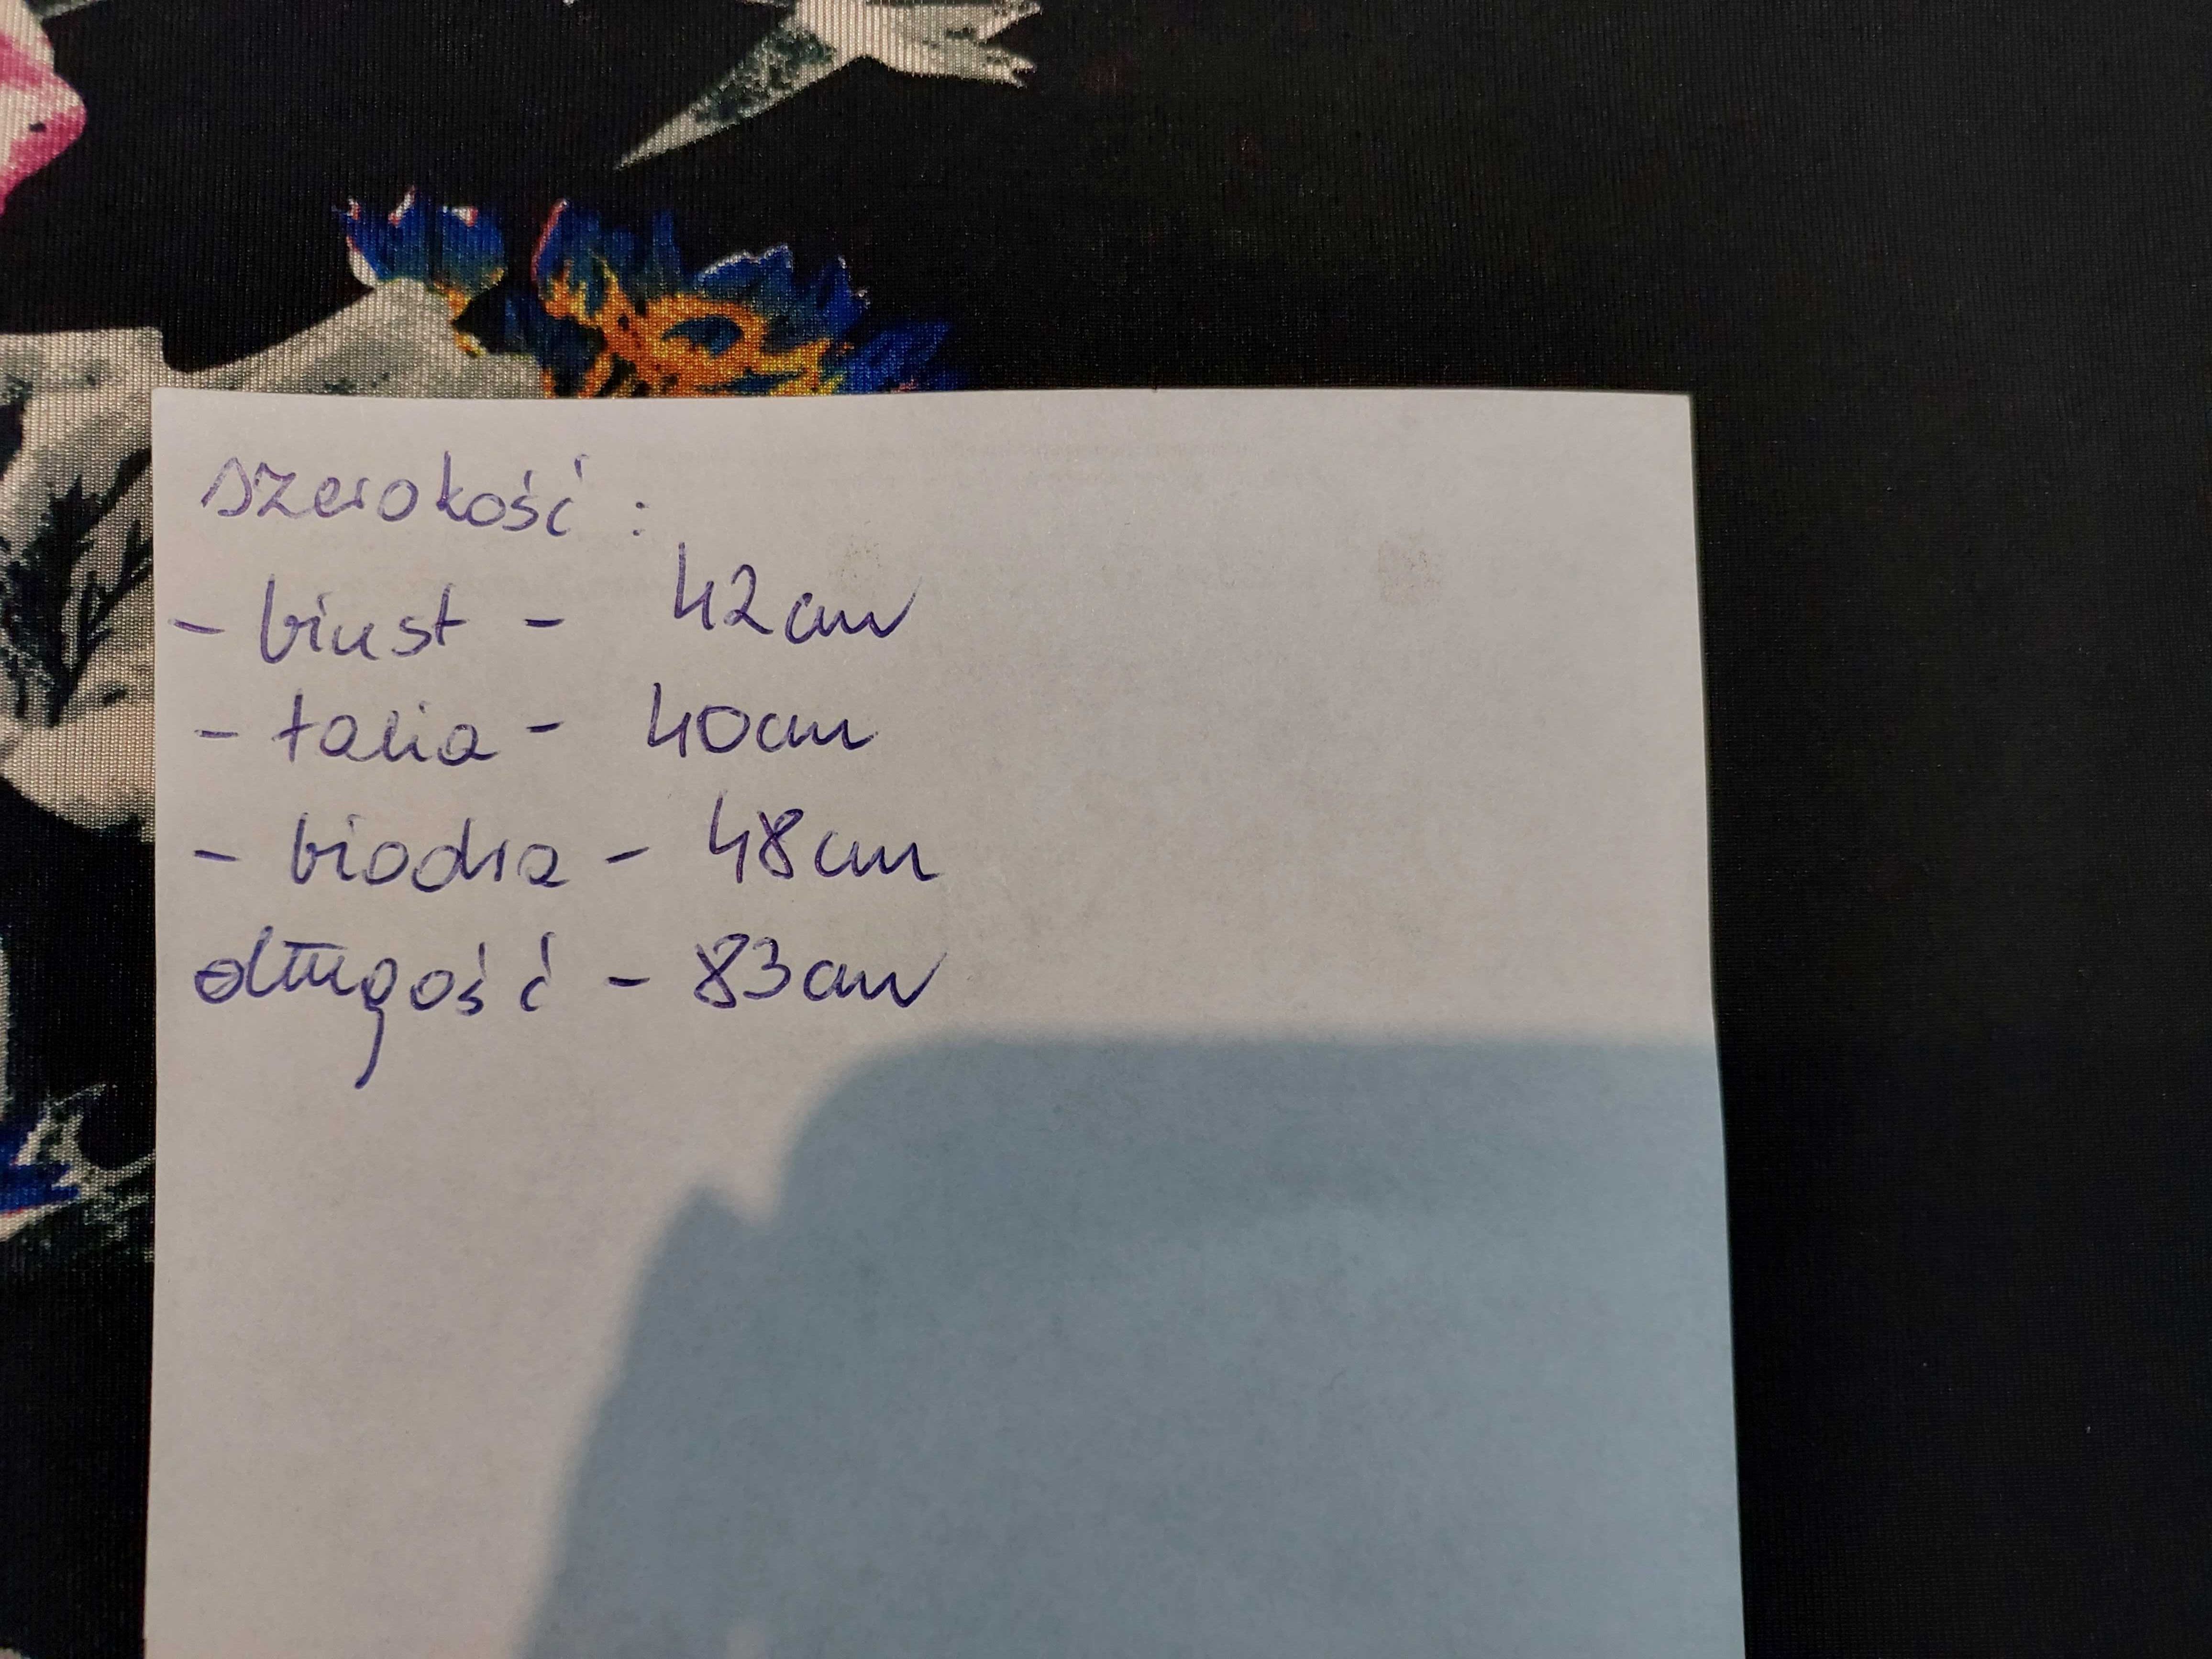 szerokość :
- biust - 42cm
- talia - 40cm
- biodra - 48cm
długość - 83cm